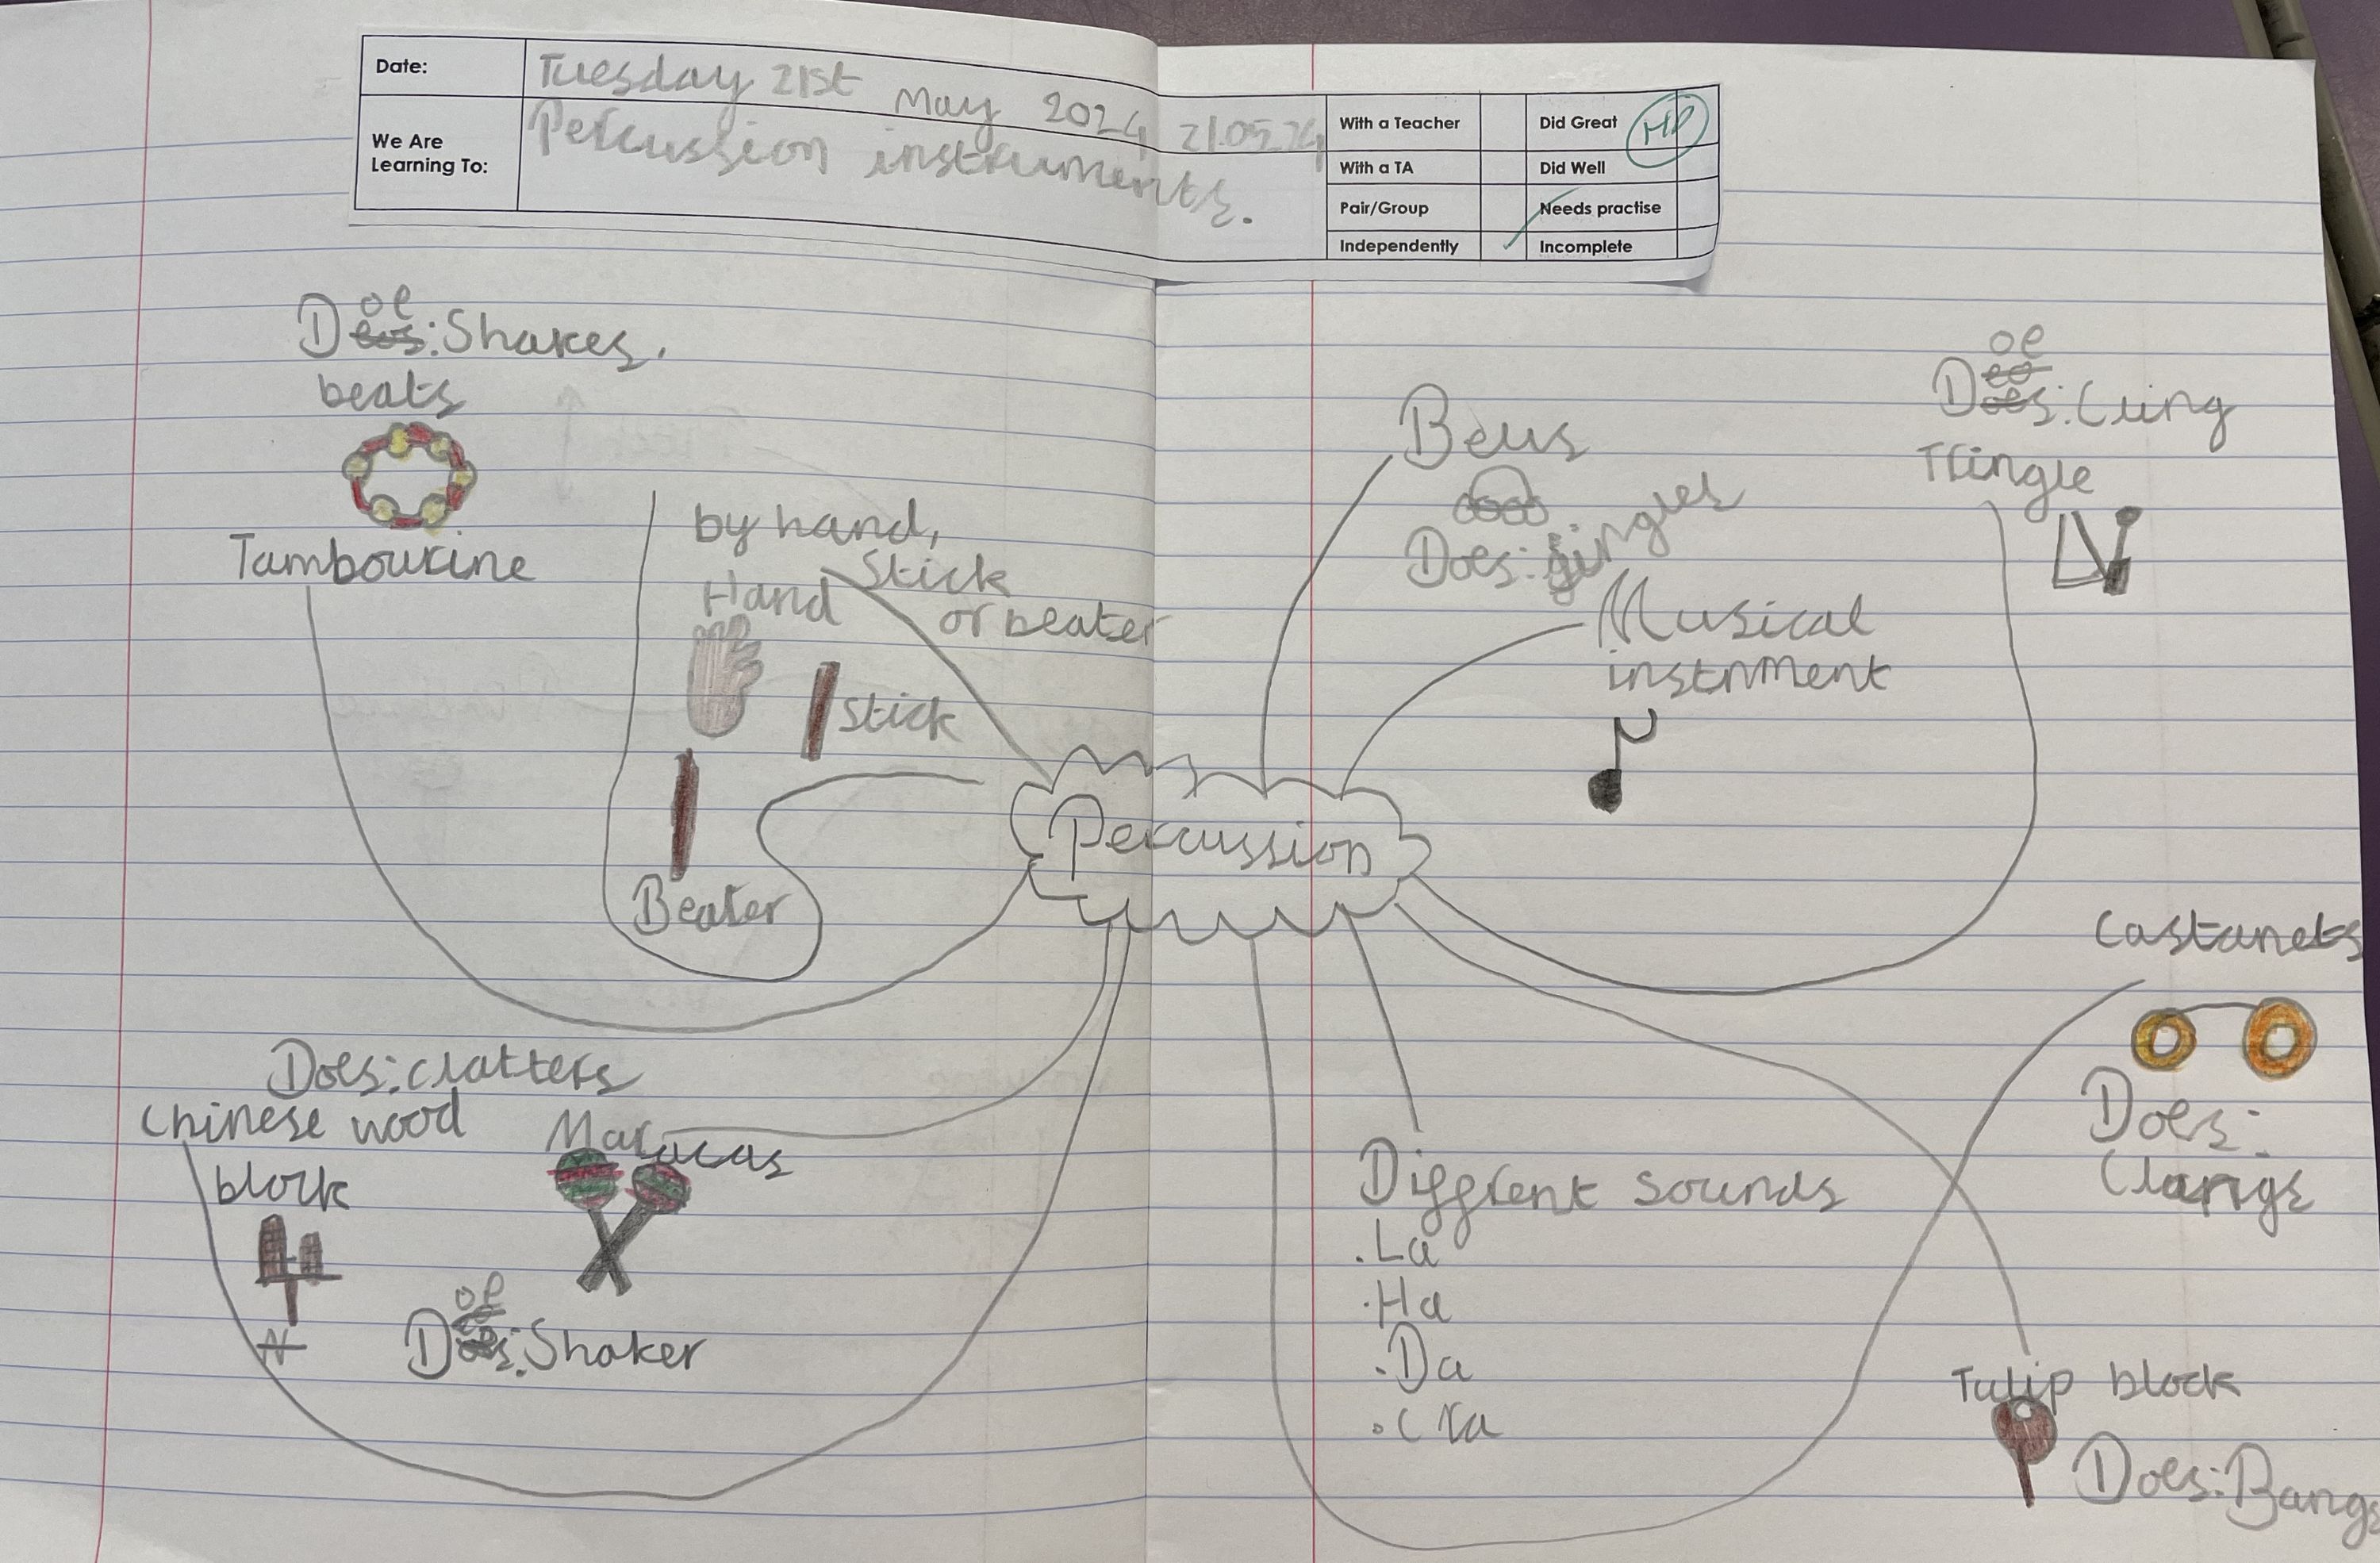 Date:
Tuesday 21st May 2024 21.05.24
We Are
Learning To:
Percussion instruments.
With a Teacher
Did Great
HP
With a TA
Did Well
Pair/Group
Needs practise
Independently
Incomplete
Does: Shakes.
beats
Tambourine
by hand,
Stick
or beater
Hand
Stick
Beater
Bells
Does: jingles
Musical
instrment
Does: Cling
Tringle
Percussion
Castanets
Does:
Clangs
Does: clatters
Chinese wood
block
Maracas
Does: Shaker
Diffrent sounds
. La
. Ha
. Da
. Cra
Tulip block
Does: Bangs